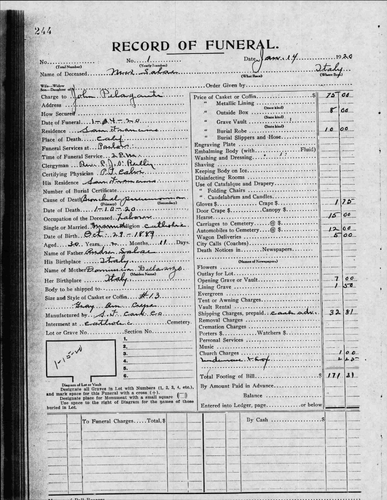 244
RECORD OF FUNERAL.
No. No. 1 Date Jan. 14 1920
(Total Number) (Yearly Number)
Name of Deceased Italy
(What Race) (Where Born)
Charge to John
Order Given by
Address
How Secured
Date of Funeral 1-24-20
Residence San Francisco
Place of Death Calif
Funeral Services at Parlor
Time of Funeral Service 2 P.M.
Clergyman Rev. P. J. O'Reilly
Certifying Physician
His Residence San Francisco
Number of Burial Certificate
Cause of Death Bronchial pneumonia
Date of Death 1-10-20
Occupation of the Deceased Laborer
Single or Married Married Religion Catholic
Date of Birth Oct. 29-1889
Aged 30 Years Months 11 Days
Name of Father Andrea
His Birthplace Italy
Name of Mother
Her Birthplace Italy
Body to be shipped to
Size and Style of Casket or Coffin #13
Gray
Manufactured by S. F. Cask Co.
Interment at Catholic Cemetery
Lot or Grave No. Section No.
1
2
3
4
5
6
Diagram of Lot or Vault
Designate all Graves in Lot with Numbers (1, 2, 3, 4, etc.), and mark space for this Funeral with a cross (+)
Designate place for Monument with a small square
Use space to the right of Diagram for the names of those buried in Lot.
Price of Casket or Coffin 75 00
" Metallic Lining
" Outside Box 8 00
" Grave Vault
" Burial Robe 10 00
" Burial Slippers and Hose
Engraving Plate
Embalming Body (with Fluid)
Washing and Dressing
Shaving
Keeping Body on Ice
Disinfecting Rooms
Use of Catafalque and Drapery
" Folding Chairs
" Candelabrum and Candles
Gloves $ Crape $ 1 75
Door Crape $ Canopy $
Hearse 15 00
Carriages to Cemetery @ $
Automobiles to Cemetery @ $ 12 00
Wagon Deliveries 5 00
City Calls (Coaches)
Death Notices in Newspapers
Flowers
Outlay for Lot
Opening Grave or Vault 7 00
Lining Grave 1 50
Evergreen
Tent or Awning Charges
Vault Rental
Shipping Charges, prepaid cash adv. 32 81
Removal Charges
Cremation Charges
Porters $ Watchers $
Personal Services
Music
Church Charges 1 00
2 25
Total Footing of Bill 171 31
By Amount Paid in Advance
Balance
Entered into Ledger, page or below.
To Funeral Charges Total, $
By Cash $